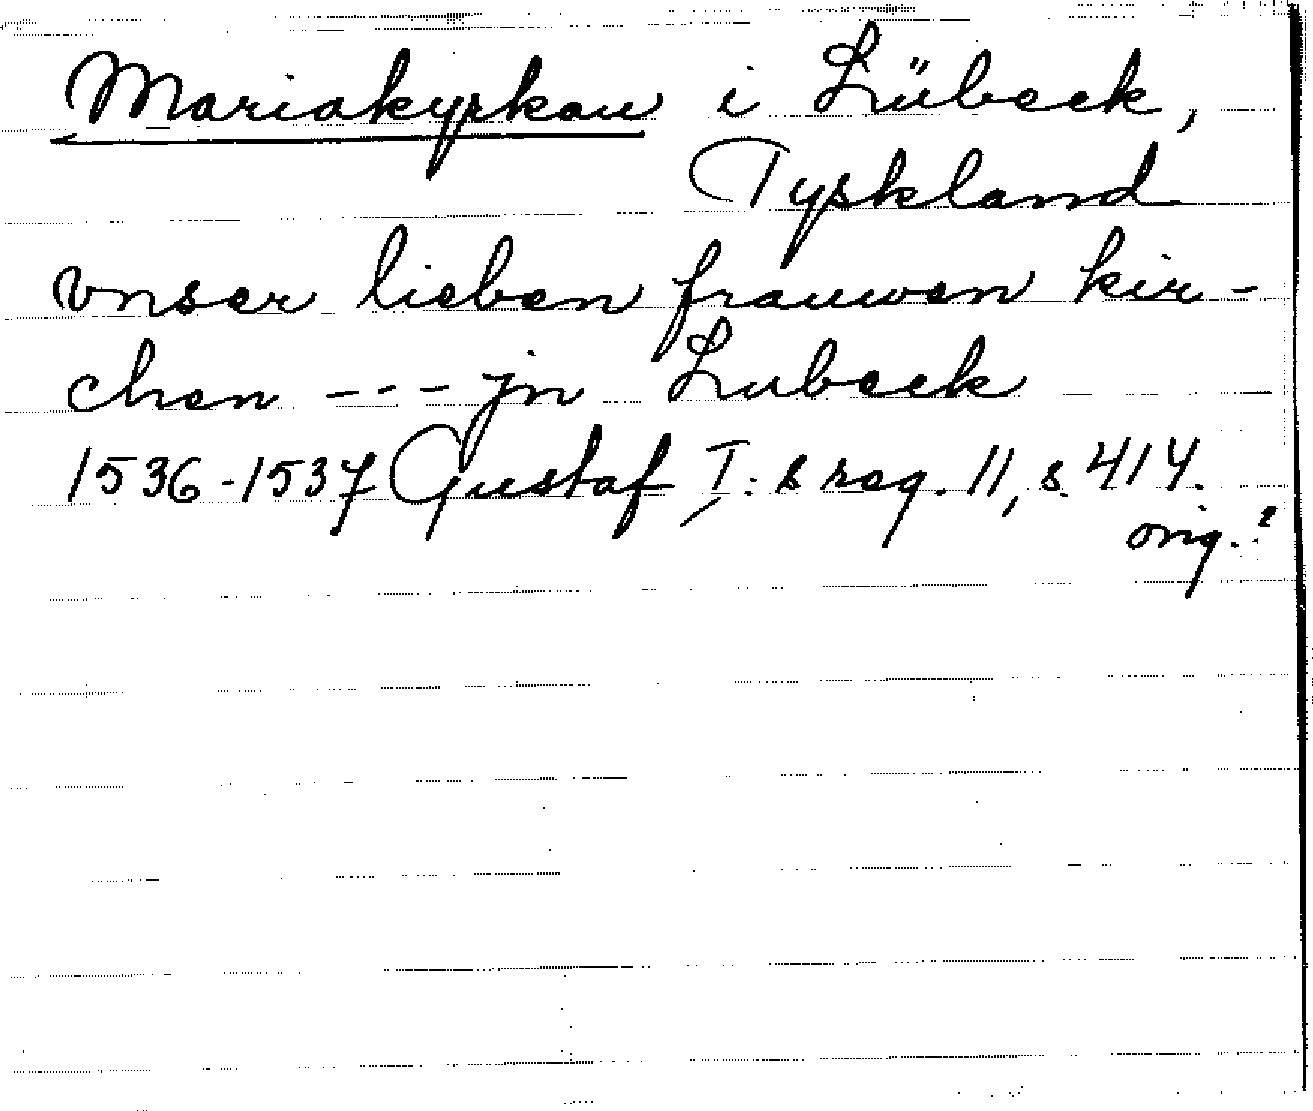 Mariakyrkan i Lübeck,
Tyskland
vnser lieben frauwen kir-
chen --- jn Lubeck
1536-1537 Gustaf I:s reg. 11, s. 414.
orig.?